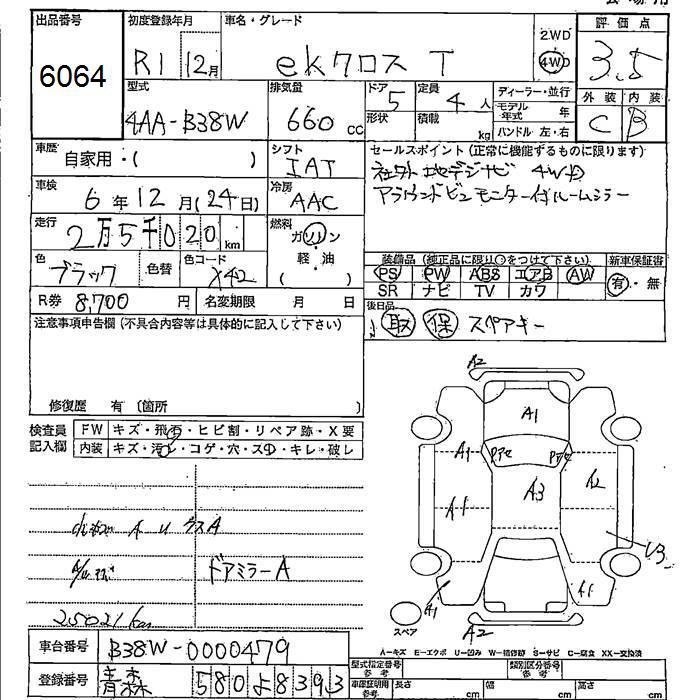 出品番号
6064
初度登録年月
R1 12月
車名・グレード
ekクロス T
2WD
4WD
評価点
3.5
外装 内装
C B
型式
4AA-B38W
排気量
660 cc
ドア 5
形状
定員 4 人
積載 kg
ディーラー・並行
モデル年式 年
ハンドル 左・右
車歴
自家用・( )
シフト
IAT
セールスポイント(正常に機能するものに限ります)
社外地デジナビ 4WD
アラウンドビュモニター付ルームミラー
車検
6年12月(24日)
冷房
AAC
走行
2万5千020 km
燃料
ガソリン
軽・油
( )
色
ブラック
色替
色コード
X42
装備品(純正品に限り○をつけて下さい)
PS PW ABS エアB AW
SR ナビ TV カワ
新車保証書
有・無
R券 8,700 円
名変期限 月 日
後日品
取 保 スペアキー
注意事項申告欄(不具合内容等は具体的に記入して下さい)
修復歴 有 (箇所 )
検査員記入欄
FW キズ・飛石・ヒビ割・リペア跡・X要
内装 キズ・汚レ・コゲ・穴・スレ・キレ・破レ
A U
ドアミラーA
25021km
A2
A1
A1
A1
A3
A2
U3
A1
A1
A2
スペア
A-キズ E-エクボ U-凹み W-補修跡 S-サビ C-腐食 XX-交換済
車台番号
B38W-0000479
登録番号
青森 580よ8393
型式指定番号
参考
類別区分番号
参考
車庫証明用
参考
長さ cm
幅 cm
高さ cm